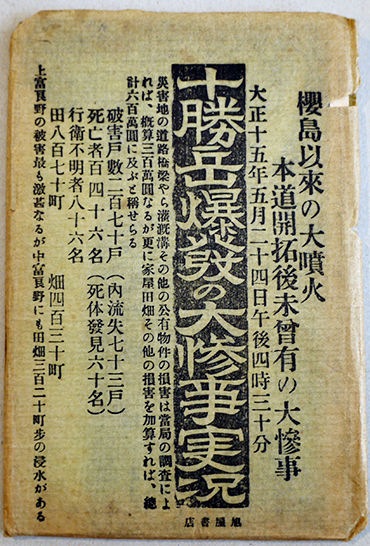 櫻島以來の大噴火
本道開拓後未曾有の大慘事
大正十五年五月二十四日午後四時三十分
十勝岳爆發の大慘事実况
旭屋書店
災害地の道路橋梁やら灌漑溝その他の公有物件の損害は當局の調査によ
れば、概算三百萬圓なるが更に家屋田畑その他の損害を加算すれば、總
計六百萬圓に及ぶと稱せらる
破害戸數二百七十戸(內流失七十三戸)
死亡者百四十六名(死体發見六十名)
行衛不明者八十六名
田八百七十町　畑四百三十町
上富良野の被害最も激甚なるが中富良野にも田畑三百二十町步の浸水がある